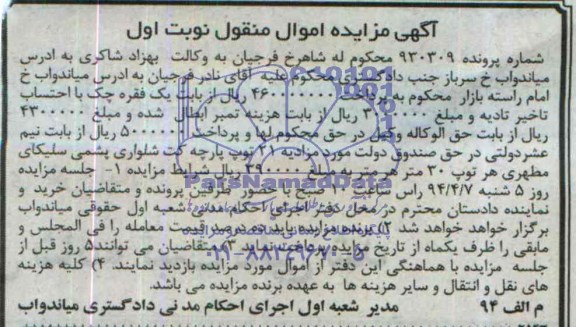 آگهی مزایده اموال منقول نوبت اول
شماره پرونده ۹۳۰۳۰۹ محکوم له شاهرخ فرجیان به وکالت بهزاد شاکری به ادرس
میاندواب خ سرباز جنب دادگستری محکوم علیه آقای نادر فرجیان به ادرس میاندواب خ
امام راسته بازار محکوم به پرداخت ریال از بابت یک فقره چک با احتساب
تاخیر تادیه و مبلغ ریال از بابت هزینه تمبر ابطال شده و مبلغ ۴۳۰۰۰۰۰
ریال از بابت حق الوکاله وکیل در حق محکوم لها و پرداخت ریال از بابت نیم
عشردولتی در حق صندوق دولت مورد مزادیه ۲۱ توپ پارچه کت شلواری پشمی سلیکای
مطهری هر توپ ۳۰ متر هر متر به مبلغ ۳۹۰۰۰۰ ریال شرایط مزایده ۱- جلسه مزایده
روز ۵ شنبه ۹۴/۴/۷ راس ساعت صبح با حضور طرفین پرونده و متقاضیان خرید و
نماینده دادستان محترم در محل دفتر اجرای احکام مدنی شعبه اول حقوقی میاندواب
برگزار خواهد خواهد شد ۲) برنده مزایده باید ده درصد قیمت معامله را فی المجلس و
مابقی را ظرف یکماه از تاریخ مزایده پرداخت نماید ۳) متقاضیان می توانند ۵ روز قبل از
جلسه مزایده با هماهنگی این دفتر از اموال مورد مزایده بازدید نمایند. ۴) کلیه هزینه
های نقل و انتقال و سایر هزینه ها به عهده برنده مزایده می باشد.
م الف ۹۴ مدیر شعبه اول اجرای احکام مدنی دادگستری میاندواب
ParsNamadData
۰۲۱-۸۸۳۴۹۶۷۰-۵